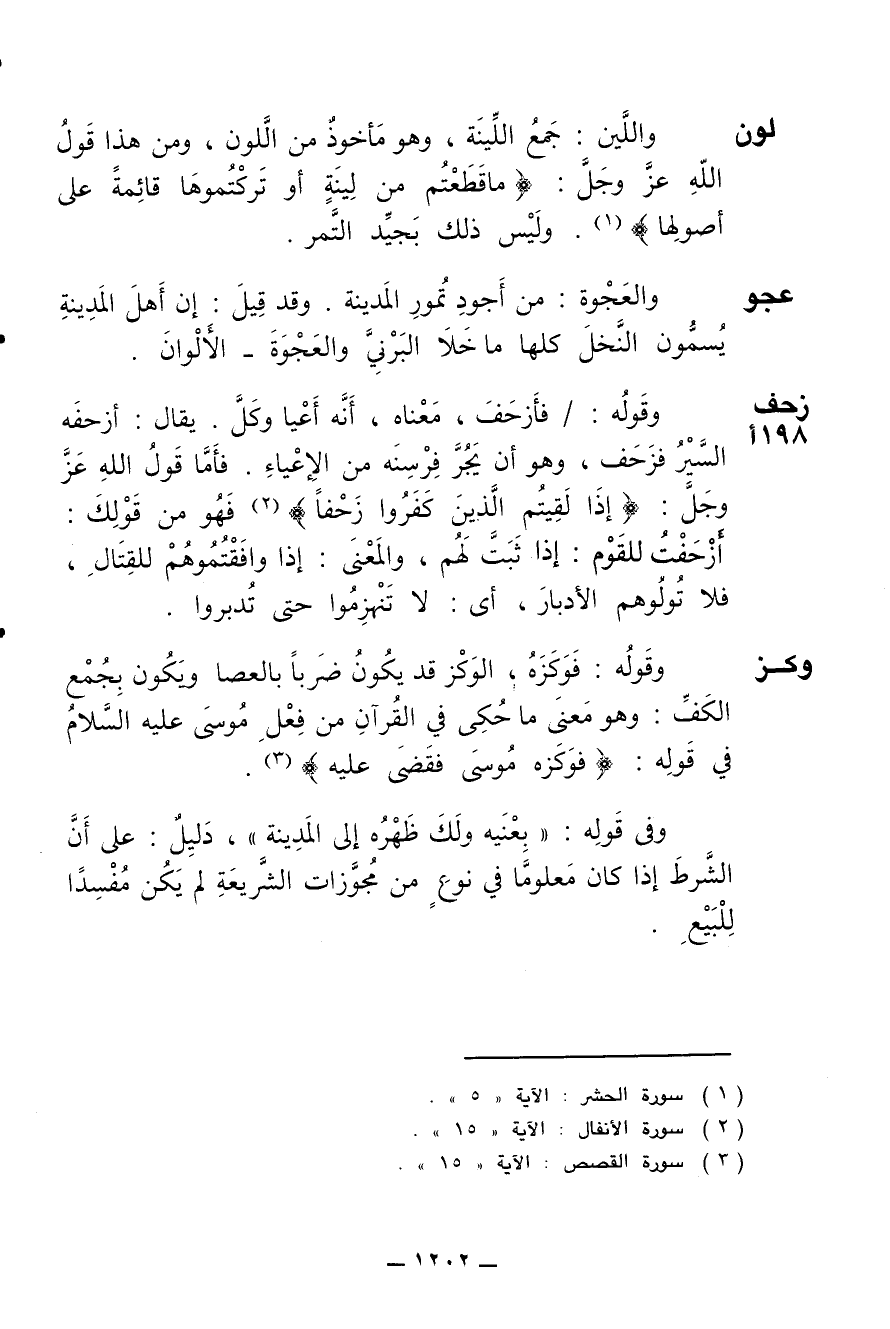 لون واللَّين : جَمعُ اللِّينَة ، وهو مَأخوذٌ من الَّلون ، ومن هذا قَولُ
اللّهِ عزَّ وجَلَّ : ﴿ ماقَطَعْتُم من لِينَةٍ أو تَركْتُموهَا قائِمةً على
أصولِها ﴾ (١) . ولَيْس ذلك بَجيِّد التَّمر .
عجو والعَجْوة : من أَجودِ تُمورِ المَدينة . وقد قِيلَ : إن أَهلَ المَدِينةِ
يُسمُّون النَّخلَ كلها ما خَلَا البَرْنيَّ والعَجْوَةَ – الأَلْوانَ .
زحف وقَولُه : / فأَزحَفَ ، مَعْناه ، أَنَّه أَعْيا وكَلَّ . يقال : أزحفَه
١٩٨أ السَّيْرُ فزَحَف ، وهو أن يَجُرَّ فِرْسِنَه من الإِعْياءِ . فأمَّا قَولُ اللهِ عَزَّ
وجَلَّ : ﴿ إذَا لَقِيتُم الَّذينَ كَفَرُوا زَحْفاً ﴾ (٢) فَهُو من قَوْلِكَ :
أَزْحَفْتُ للقَوْم : إذا ثَبَتَّ لَهُم ، والمَعْنَى : إذا وافَقْتُمُوهُمْ للقِتَالِ ،
فلا تُولُوهم الأدبارَ ، أى : لا تَنْهزِمُوا حتى تُدبروا .
وكـز وقَولُه : فَوَكَزَهُ ، الوَكْز قد يكُونُ ضَرباً بالعصا ويَكُون بِجُمْع
الكَفِّ : وهو مَعنَى ما حُكِى في القُرآنِ من فِعْلِ مُوسَى عليه السَّلامُ
في قَولِه : ﴿ فوَكَزه مُوسَى فقَضَى عليه ﴾ (٣) .
وفى قَولِه : « بِعْنَيه ولَكَ ظَهْرُه إلى المَدِينة » ، دَليِلٌ : على أَنَّ
الشَّرطَ إذا كان مَعلومًا في نوعٍ من مُجوَّزات الشَّريعَةِ لم يَكُن مُفْسِدًا
لِلْبَيْعِ .
( ١ ) سورة الحشر : الآية « ٥ » .
( ٢ ) سورة الأنفال : الآية « ١٥ » .
( ٣ ) سورة القصص : الآية « ١٥ » .
– ١٢٠٢ –